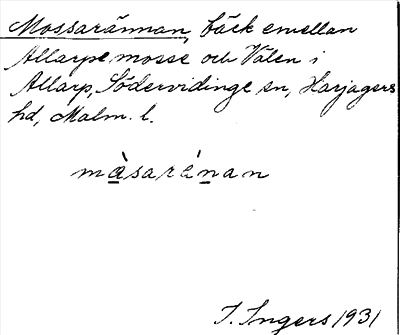 Mossarännan, bäck emellan
Allarpe mosse och Välen i
Allarp, Södervidinge sn, Harjagers
hd, Malm. l.
màsarénan
I. Ingers 1931